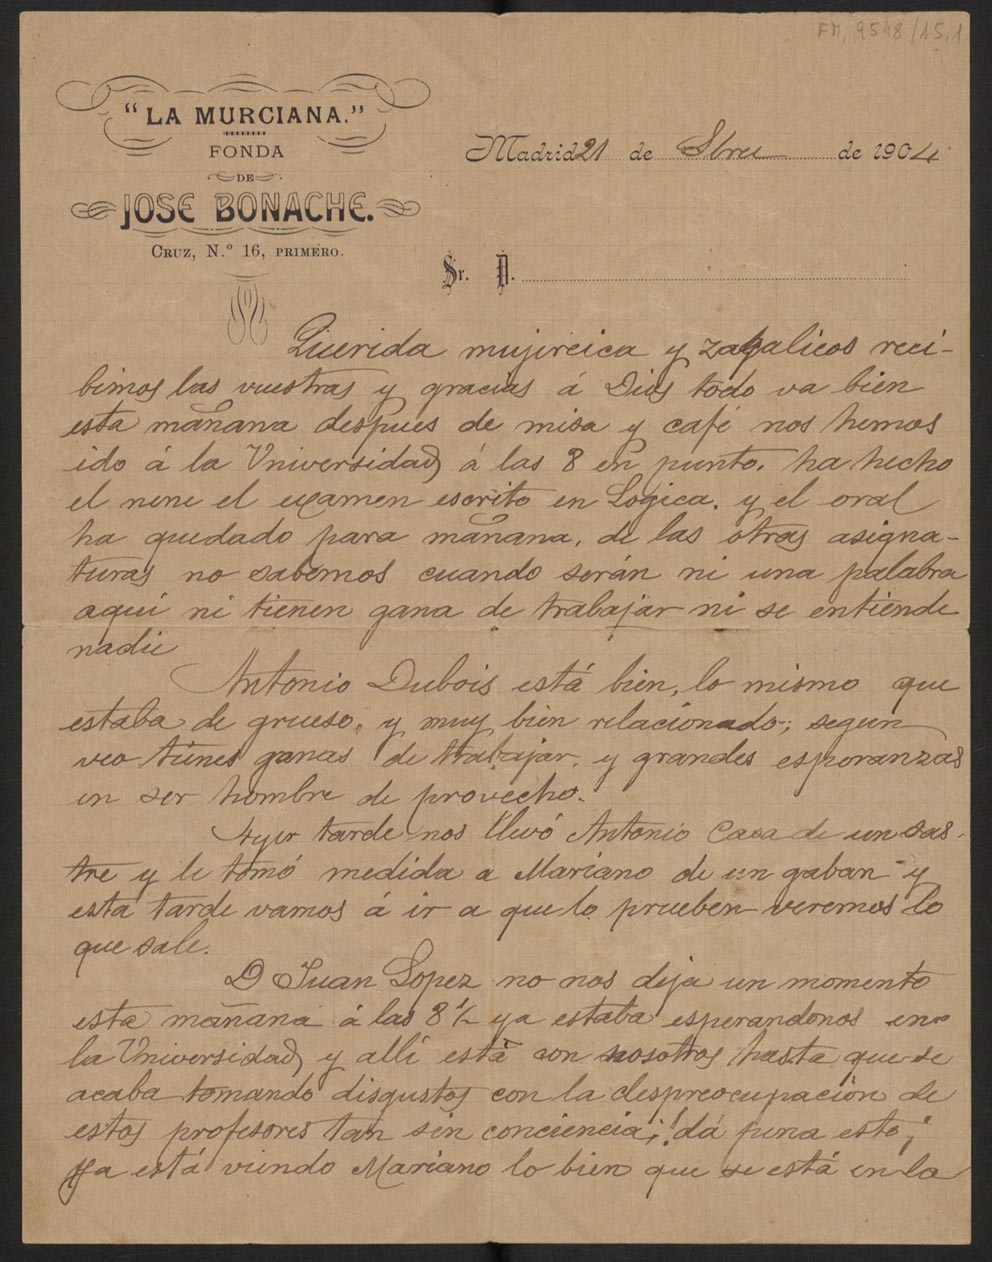 FM, 9548/15,1
"LA MURCIANA."
FONDA
DE
JOSE BONACHE.
CRUZ, N.º 16, PRIMERO.
Madrid 21 de Sbre de 1904
Sr. D.
Querida mujircica y zagalicos reci-
bimos las vuestras y gracias á Dios todo va bien
esta mañana despues de misa y café nos hemos
ido á la Universidad á las 8 en punto. ha hecho
el nene el examen escrito en Logica. y el oral
ha quedado para mañana, de las otras asigna-
turas no sabemos cuando serán ni una palabra
aqui ni tienen gana de trabajar ni se entiende
nadie
Antonio Dubois está bien, lo mismo que
estaba de grueso, y muy bien relacionado; segun
veo tienes ganas de trabajar. y grandes esperanzas
en ser hombre de provecho.
Ayer tarde nos llevó Antonio Casa de un sas-
tre y le tomó medida a Mariano de un gaban y
esta tarde vamos á ir a que lo prueben veremos lo
que sale.
D Juan Lopez no nos deja un momento
esta mañana á las 8 ½ ya estaba esperandonos en
la Universidad y allí está con nosotros hasta que se
acaba tomando disgustos con la despreocupación de
estos profesores tan sin conciencia; ¡dá pena esto;
Ya está viendo Mariano lo bien que se está en la